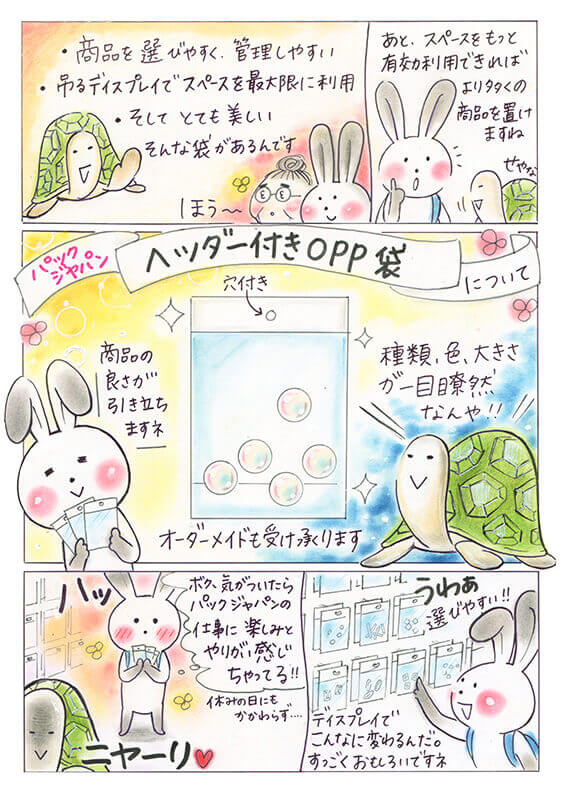 あと、スペースをもっと
有効利用できれば
よりタタくの
商品を置け
ますね
せやな
・商品を選びやすく、管理しやすい
・吊るディスプレイでスペースを最大限に利用
・そして とても美しい
そんな袋があるんです
ほう〜
パック
ジャパン
ヘッダー付きOPP袋
について
穴付き
種類、色、大きさ
が一目瞭然
なんや!!
商品の
良さが
引き立ち
ますネ
オーダーメイドも受け承ります
うわぁ
選びやすい!!
ディスプレイで
こんなに変わるんだ。
すっごくおもしろいですネ
ハッ
ボク、気がついたら
パックジャパンの
仕事に楽しみと
やりがい感じ
ちゃってる!!
休みの日にも
かかわらず‥‥
ニヤーリ♥